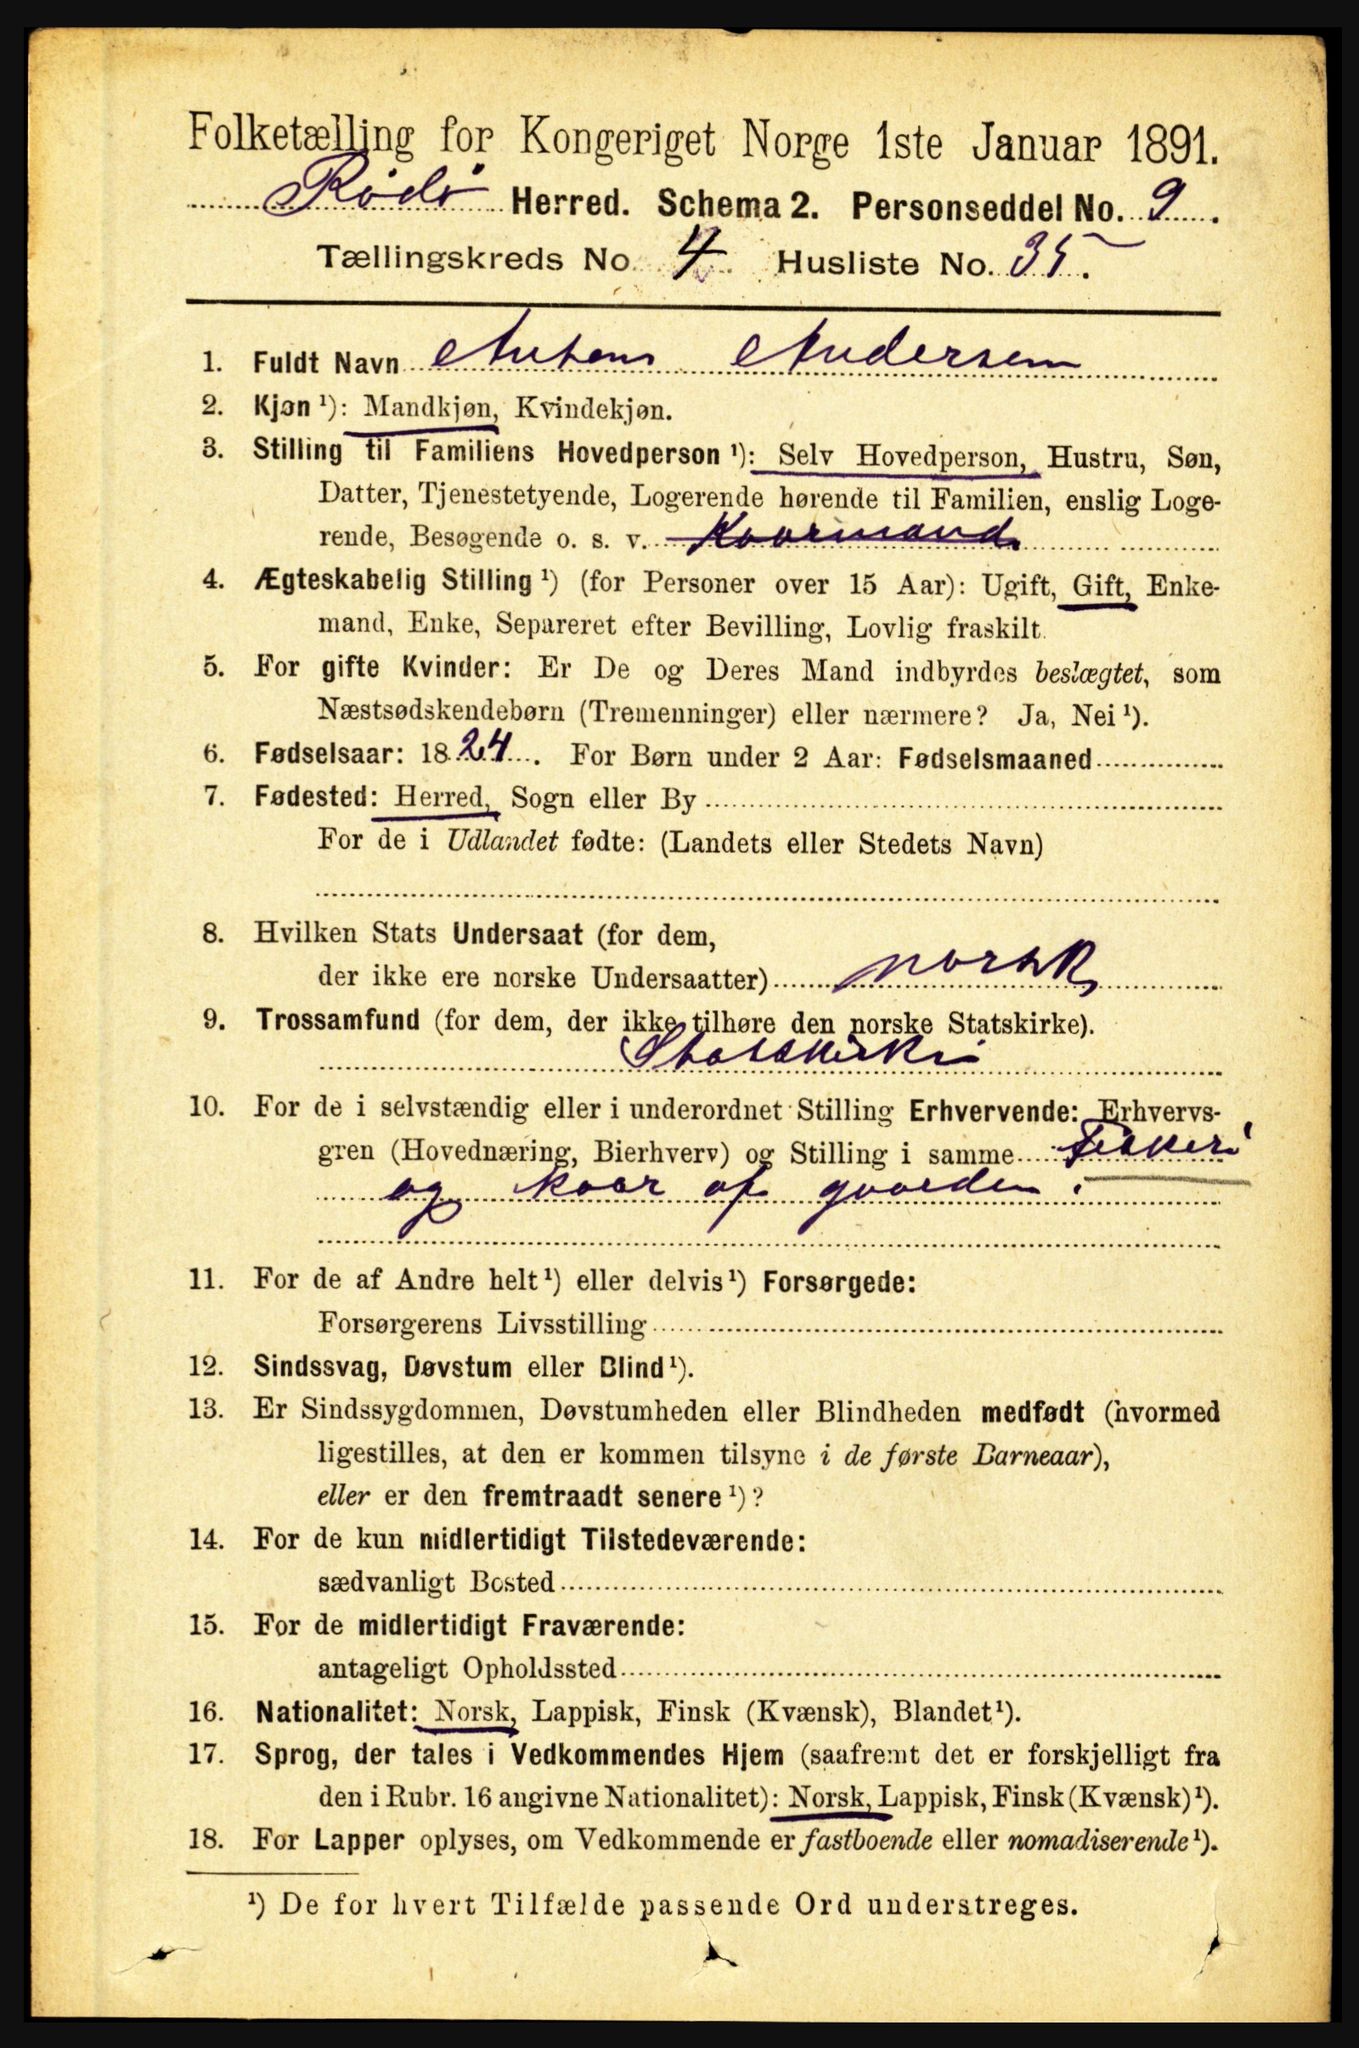 Folketælling for Kongeriget Norge 1ste Januar 1891.
Rödö Herred. Schema 2. Personseddel No. 9.
Tællingskreds No. 4. Husliste No. 35.
1. Fuldt Navn Antons Andersen
2. Kjøn ¹): Mandkjøn, Kvindekjøn.
3. Stilling til Familiens Hovedperson ¹): Selv Hovedperson, Hustru, Søn,
Datter, Tjenestetyende, Logerende hørende til Familien, enslig Loge-
rende, Besøgende o. s. v. Kaarmand
4. Ægteskabelig Stilling ¹) (for Personer over 15 Aar): Ugift, Gift, Enke-
mand, Enke, Separeret efter Bevilling, Lovlig fraskilt.
5. For gifte Kvinder: Er De og Deres Mand indbyrdes beslægtet, som
Næstsødskendebørn (Tremenninger) eller nærmere? Ja, Nei ¹).
6. Fødselsaar: 1824. For Børn under 2 Aar: Fødselsmaaned
7. Fødested: Herred, Sogn eller By
For de i Udlandet fødte: (Landets eller Stedets Navn)
8. Hvilken Stats Undersaat (for dem,
der ikke ere norske Undersaatter) norsk
9. Trossamfund (for dem, der ikke tilhøre den norske Statskirke).
Statskirken
10. For de i selvstændig eller i underordnet Stilling Erhvervende: Erhvervs-
gren (Hovednæring, Bierhverv) og Stilling i samme Fiskeri
og kaar af gaarden.
11. For de af Andre helt ¹) eller delvis ¹) Forsørgede:
Forsørgerens Livsstilling
12. Sindssvag, Døvstum eller Blind ¹).
13. Er Sindssygdommen, Døvstumheden eller Blindheden medfødt (hvormed
ligestilles, at den er kommen tilsyne i de første Barneaar),
eller er den fremtraadt senere ¹)?
14. For de kun midlertidigt Tilstedeværende:
sædvanligt Bosted
15. For de midlertidigt Fraværende:
antageligt Opholdssted
16. Nationalitet: Norsk, Lappisk, Finsk (Kvænsk), Blandet ¹).
17. Sprog, der tales i Vedkommendes Hjem (saafremt det er forskjelligt fra
den i Rubr. 16 angivne Nationalitet): Norsk, Lappisk, Finsk (Kvænsk) ¹).
18. For Lapper oplyses, om Vedkommende er fastboende eller nomadiserende ¹).
¹) De for hvert Tilfælde passende Ord understreges.